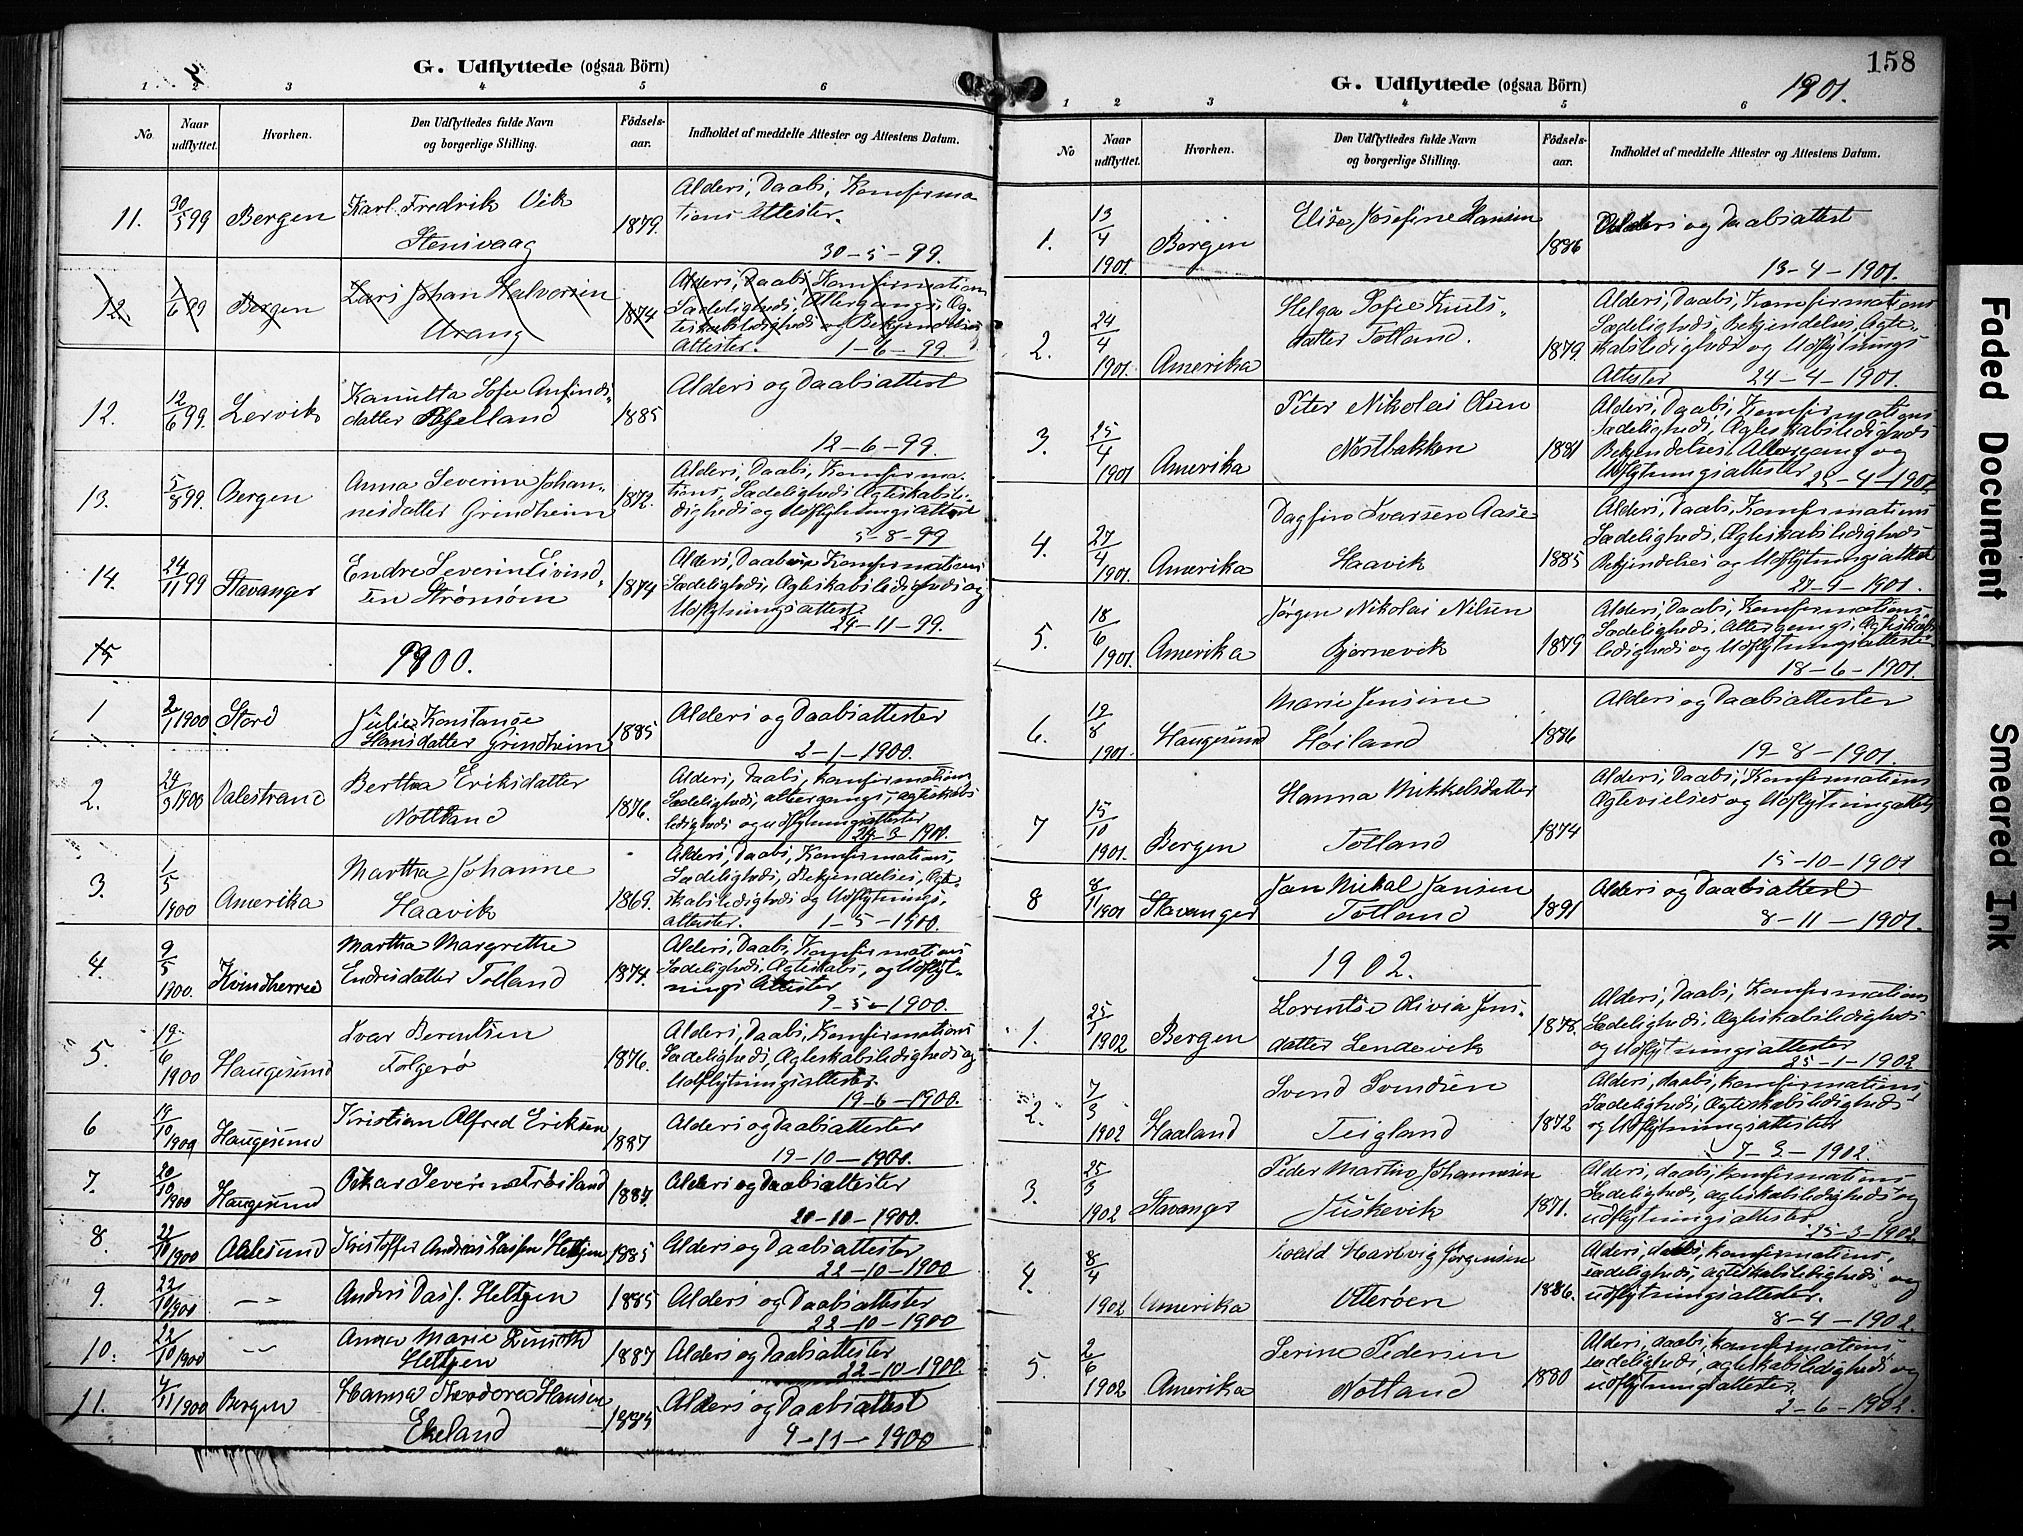 G. Udflyttede (ogsaa Börn)
1 2 3 4 5 6
No. Naar udflyttet. Hvorhen. Den Udflyttedes fulde Navn og borgerlige Stilling. Födsels-aar. Indholdet af meddelte Attester og Attestens Datum.
11. 30/5 99 Bergen Karl Fredrik Vik 1879. Alders, Daabs, Konfirma
Stensvaag tions Attester.
30-5-99.
12. 1/6 99 Bergen Lars Johan Halvorsen 1874 Alders, Daabs, Konfirmations
Vrang Sædeligheds, Altergangs, Æg-
teskabsledigheds og Bekjendelses
Attester. 1-6-99
12. 12/6 99. Lervik 1885 Alders og Daabsattest
datter
12-6-99.
13. 5/8 99. Bergen Anna Severine Johan- 1872. Alders, Daabs, Konfirma-
nesdatter Grindheim tions, Sædeligheds Ægteskabsle-
digheds og Udflytningsattest
5-8-99
14. 24/11 99 Stavanger Endre Severin Eivind- 1874 Alders, Konfirmations
sen Strømøm Sædeligheds, Ægteskabsledigheds og
Udflytningsattest
24-11-99.
15 1900.
1 2/1 1900 Stord Julie Konstanse 1885 Alders og Daabsattester
Hansdatter Grindheim 2-1-1900.
2. 24/3 1900 Valestrand Bertha Eriksdatter 1876. Alders, Daabs, konfirmations
Nottland Sædeligheds, altergangs, ægteskabs
ledigheds og udflytningsattester
24-3-1900.
3. 1/5 1900 Amerika Martha Johanne 1869. Alders, Daabs, Konfirmations,
Haavik Sædeligheds, Bekjendelses, Ægte-
skabsledigheds og Udflytnings,
attester. 1-5-1900.
4. 9/5 1900. Kvindherred Martha Margrethe 1874. Alders, Daabs, Konfirmations
Endresdatter Tolland Sædeligheds, Ægteskabs, og Udflyt-
nings Attester
9-5-1900.
5. 19/6 1900 Haugesund Ivar Berentsen 1876. Alders, Daabs, Konfirmations
Folgerø Sædeligheds, Ægteskabsledigheds og
Udflytningsattester.
19-6-1900.
6 19/10 1900 Haugesund Kristian Alfred Eriksen 1887 Alders og Daabsattester
19-10-1900.
7. 20/10 1900 Haugesund Oskar Severin 1887. Alders og Daabsattester
20-10-1900.
8. 22/10 1900 Aalesund Kristoffer Andreas 1885 Alders og Daabsattester
22-10-1900
9. 22/10 1900 -"- Anders 1885 Alders og Daabsattester
22-10-1900
10. 22/10 1900 -"- Anna Marie 1887 Alders og Daabsattester
22-10-1900.
11. 1900 Bergen Hanna Teodora Hansen Alders og Daabsattest
Ekeland 9-11-1900
158
G. Udflyttede (ogsaa Börn) 1901.
1 2 3 4 5 6
No Naar udflyttet. Hvorhen. Den Udflyttedes fulde Navn og borgerlige Stilling. Födsels-aar. Indholdet af meddelte Attester og Attestens Datum.
1. 13/4 1901. Bergen Elise Josefine Hansen 1886 Alders og Daabsattest
13-4-1901.
2. 24/4 1901. Amerika Helga Sofie Knuts- 1879 Alders, Daabs, Konfirmations
datter Totland. Sædeligheds, Bekjendelses, Ægte-
skabsledigheds og Udflytnings
Attester 24-4-1901.
3. 25/4 1901 Amerika Peter Nikolai Olsen 1881 Alders, Daabs, Konfirmations
Nostbakken Sædeligheds, Ægteskabsledigheds
Bekjendelses, Altergang og
Udflytningsattester 25-4-1901.
4. 27/4 1901. Amerika Dagfin Ivarsen Aase 1885 Alders, Daabs, Konfirmations
Haavik Sædeligheds, Ægteskabsledigheds
Bekjendelses og Udflytningsattest
27-4-1901.
5. 18/6 1901. Amerika Jørgen Nikolai Nilsen 1879 Alders, Daabs, Konfirmations,
Bjørnevik Sædeligheds, Altergangs, Ægteskabs
ledigheds og Udflytningsattester
18-6-1901.
6. 19/8 1901. Haugesund Marie Jensine 1886 Alders og Daabsattester
Høiland 19-8-1901.
7 15/10 1901. Bergen Hanna Mikkelsdatter 1874 Alders, Daabs, Konfirmations
Totland Ægtevielses og Udflytningattest
15-10-1901
8 8/11 1901 Stavanger Jan Mikal Jansen 1891 Alders og Daabsattest
Totland 8-11-1901.
1902.
1. 25/1 1902 Bergen Lorentse Olivia Jens- 1878. Alders, Daabs, Konfirmations
datter Lendevik Sædeligheds, Ægteskabsledigheds
og Udflytningsattester
25-1-1902
2. 7/3 1902 Haaland Svend Svendsen 1872 Alders, daabs, konfirmations
Teigland Sædeligheds, Ægteskabsledigheds
og Udflytningsattester
7-3-1902.
3. 25/3 1902 Stavanger Peder Martin Johannesen 1871. Alders, daabs, konfirmations
Tuskevik Sædeligheds, ægteskabsledigheds og
udflytningsattester
25-3-1902
4. 8/4 1902 Amerika Hartvig Jørgensen 1886. Alders, daabs, konfirmations,
Otterøen sædeligheds, ægteskabsledigheds og
udflytningsattester.
8-4-1902.
5. 2/6 1902 Amerika Serine Pedersen 1880 Alders, daabs, konfirmations,
Notland sædeligheds, ægteskabsledigheds og
udflytningsattester.
2-6-1902.
Faded Document
Smeared Ink